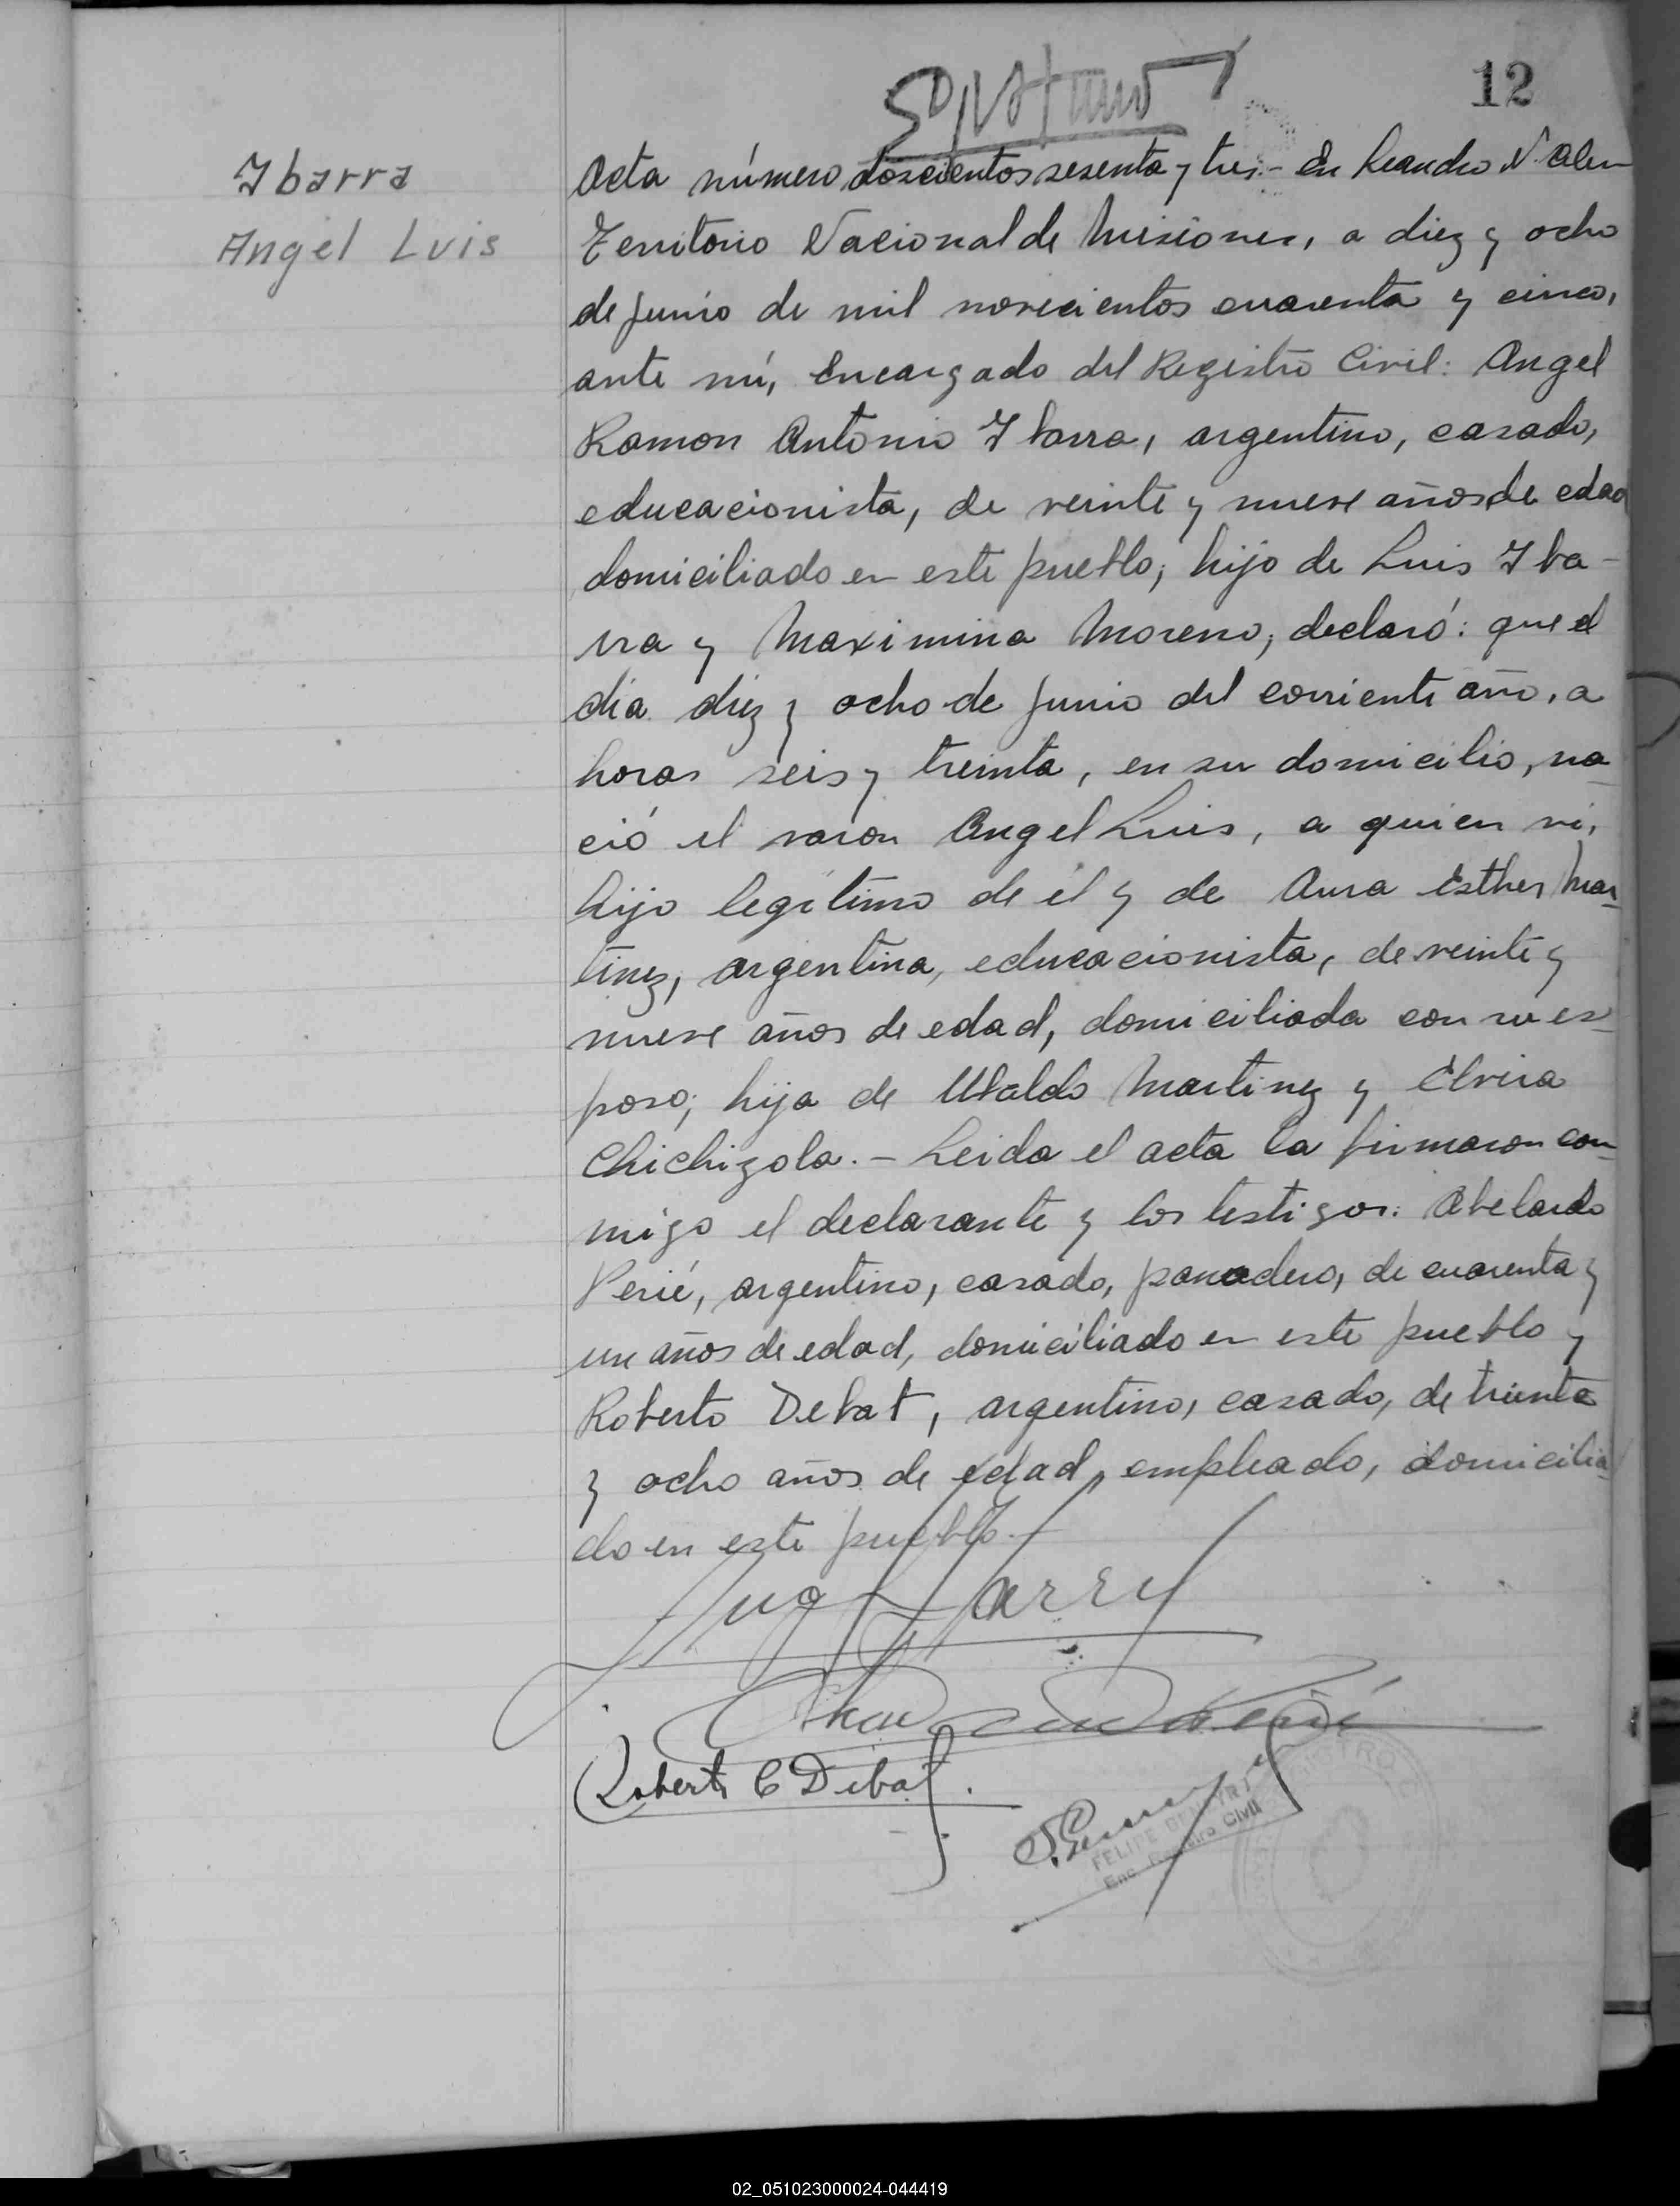 12
Ibarra
Angel Luis
Acta número doscientos sesenta y tres.- En Leandro N. Alem
Territorio Nacional de Misiones, a diez y ocho
de Junio de mil novecientos cuarenta y cinco,
ante mí, Encargado del Registro Civil: Angel
Ramon Antonio Ibarra, argentino, casado,
educacionista, de veinte y nueve años de edad
domiciliado en este pueblo; hijo de Luis Iba-
rra y Maximina Moreno; declaró: que el
día diez y ocho de Junio del corriente año, a
horas seis y treinta, en su domicilio, na
ció el varon Angel Luis, a quien ví,
hijo legítimo de él y de Aura Esther Mar
tinez, argentina, educacionista, de veinte y
nueve años de edad, domiciliada con su es
poso; hija de Ubaldo Martinez y Elvira
Chichizola.- Leida el acta la firmaron con
migo el declarante y los testigos: Abelardo
Perié, argentino, casado, panadero, de cuarenta y
un años de edad, domiciliado en este pueblo y
Roberto Debat, argentino, casado, de treinta
y ocho años de edad, empleado, domicilia
do en este pueblo.-
Roberto C Debat.
FELIPE
Enc. Registro Civil
REGISTRO
02_051023000024-044419